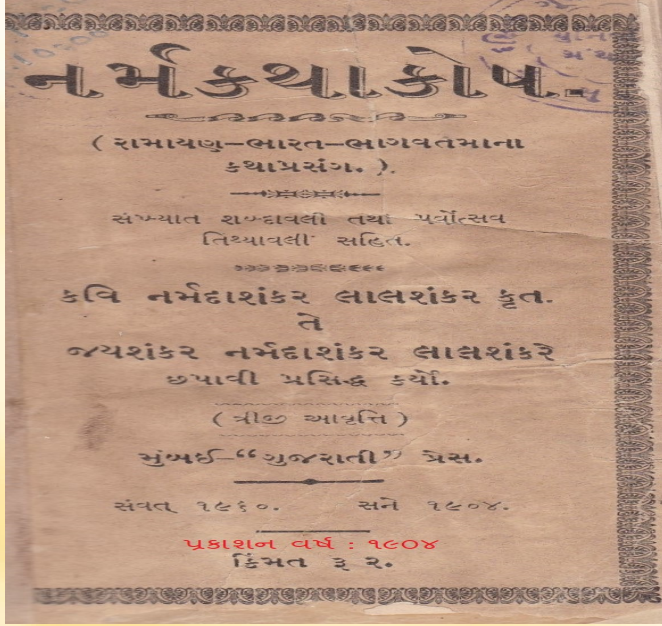 નર્મકથાકોષ.
( રામાયણ–ભારત–ભાગવતમાના
કથાપ્રસંગ. ).
સંખ્યાત શબ્દાવલી તથા પર્વોત્સવ
તિથ્યાવલી સહિત.
કવિ નર્મદાશંકર લાલશંકર કૃત.
તે
જયશંકર નર્મદાશંકર લાલશંકરે
છપાવી પ્રસિદ્ધ કર્યો.
( ત્રીજી આવૃત્તિ )
મુંબઈ–“ગુજરાતી” પ્રેસ.
સંવત્ ૧૯૬૦. સને ૧૯૦૪.
પ્રકાશન વર્ષ : ૧૯૦૪
કિંમત રૂ ૨.